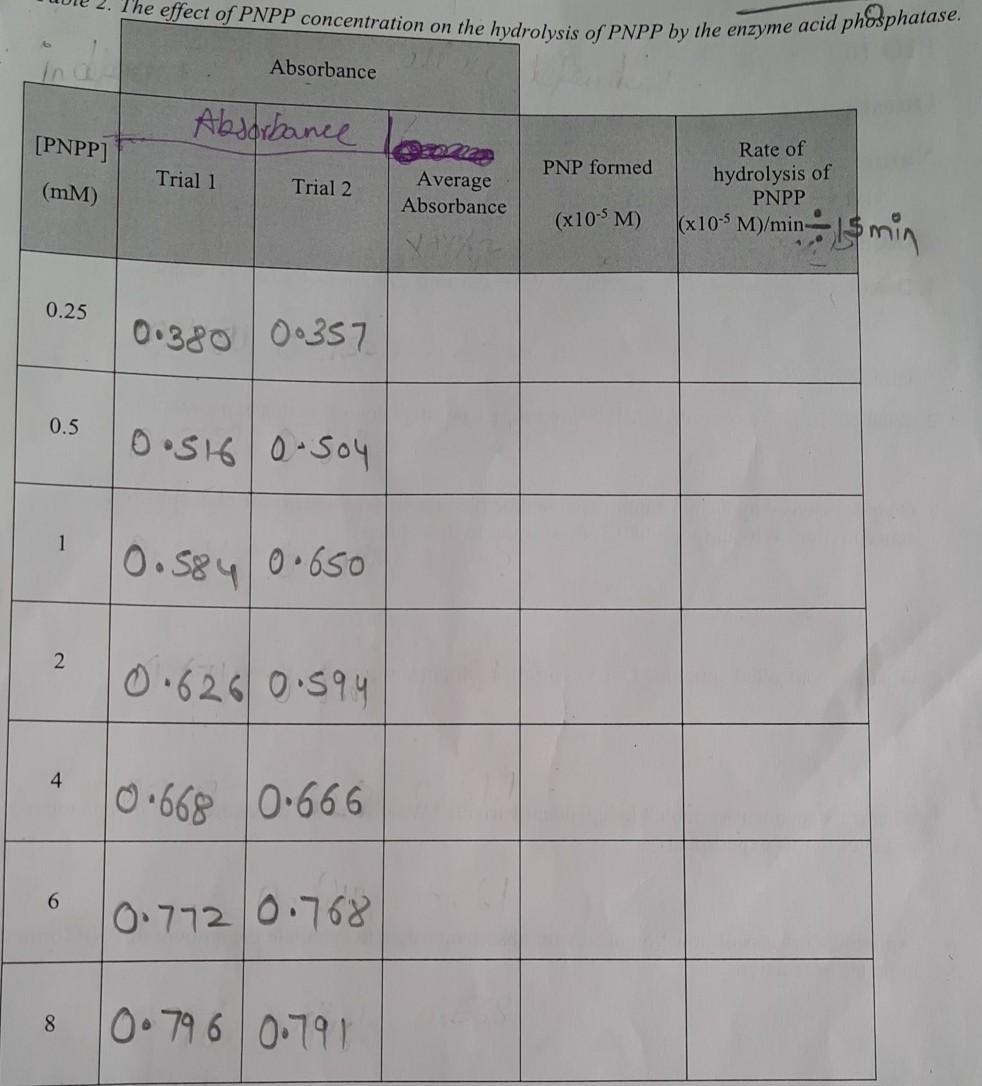 2. The effect of PNPP concentration on the hydrolysis of PNPP by the enzyme acid phosphatase.
Absorbance
Absorbance
[PNPP]
(mM)
Trial 1
Trial 2
Average
Absorbance
PNP formed
(x10⁻⁵ M)
Rate of
hydrolysis of
PNPP
(x10⁻⁵ M)/min ÷ 15 min
0.25 0.380 0.357
0.5 0.516 0.504
1 0.584 0.650
2 0.626 0.594
4 0.668 0.666
6 0.772 0.768
8 0.796 0.791